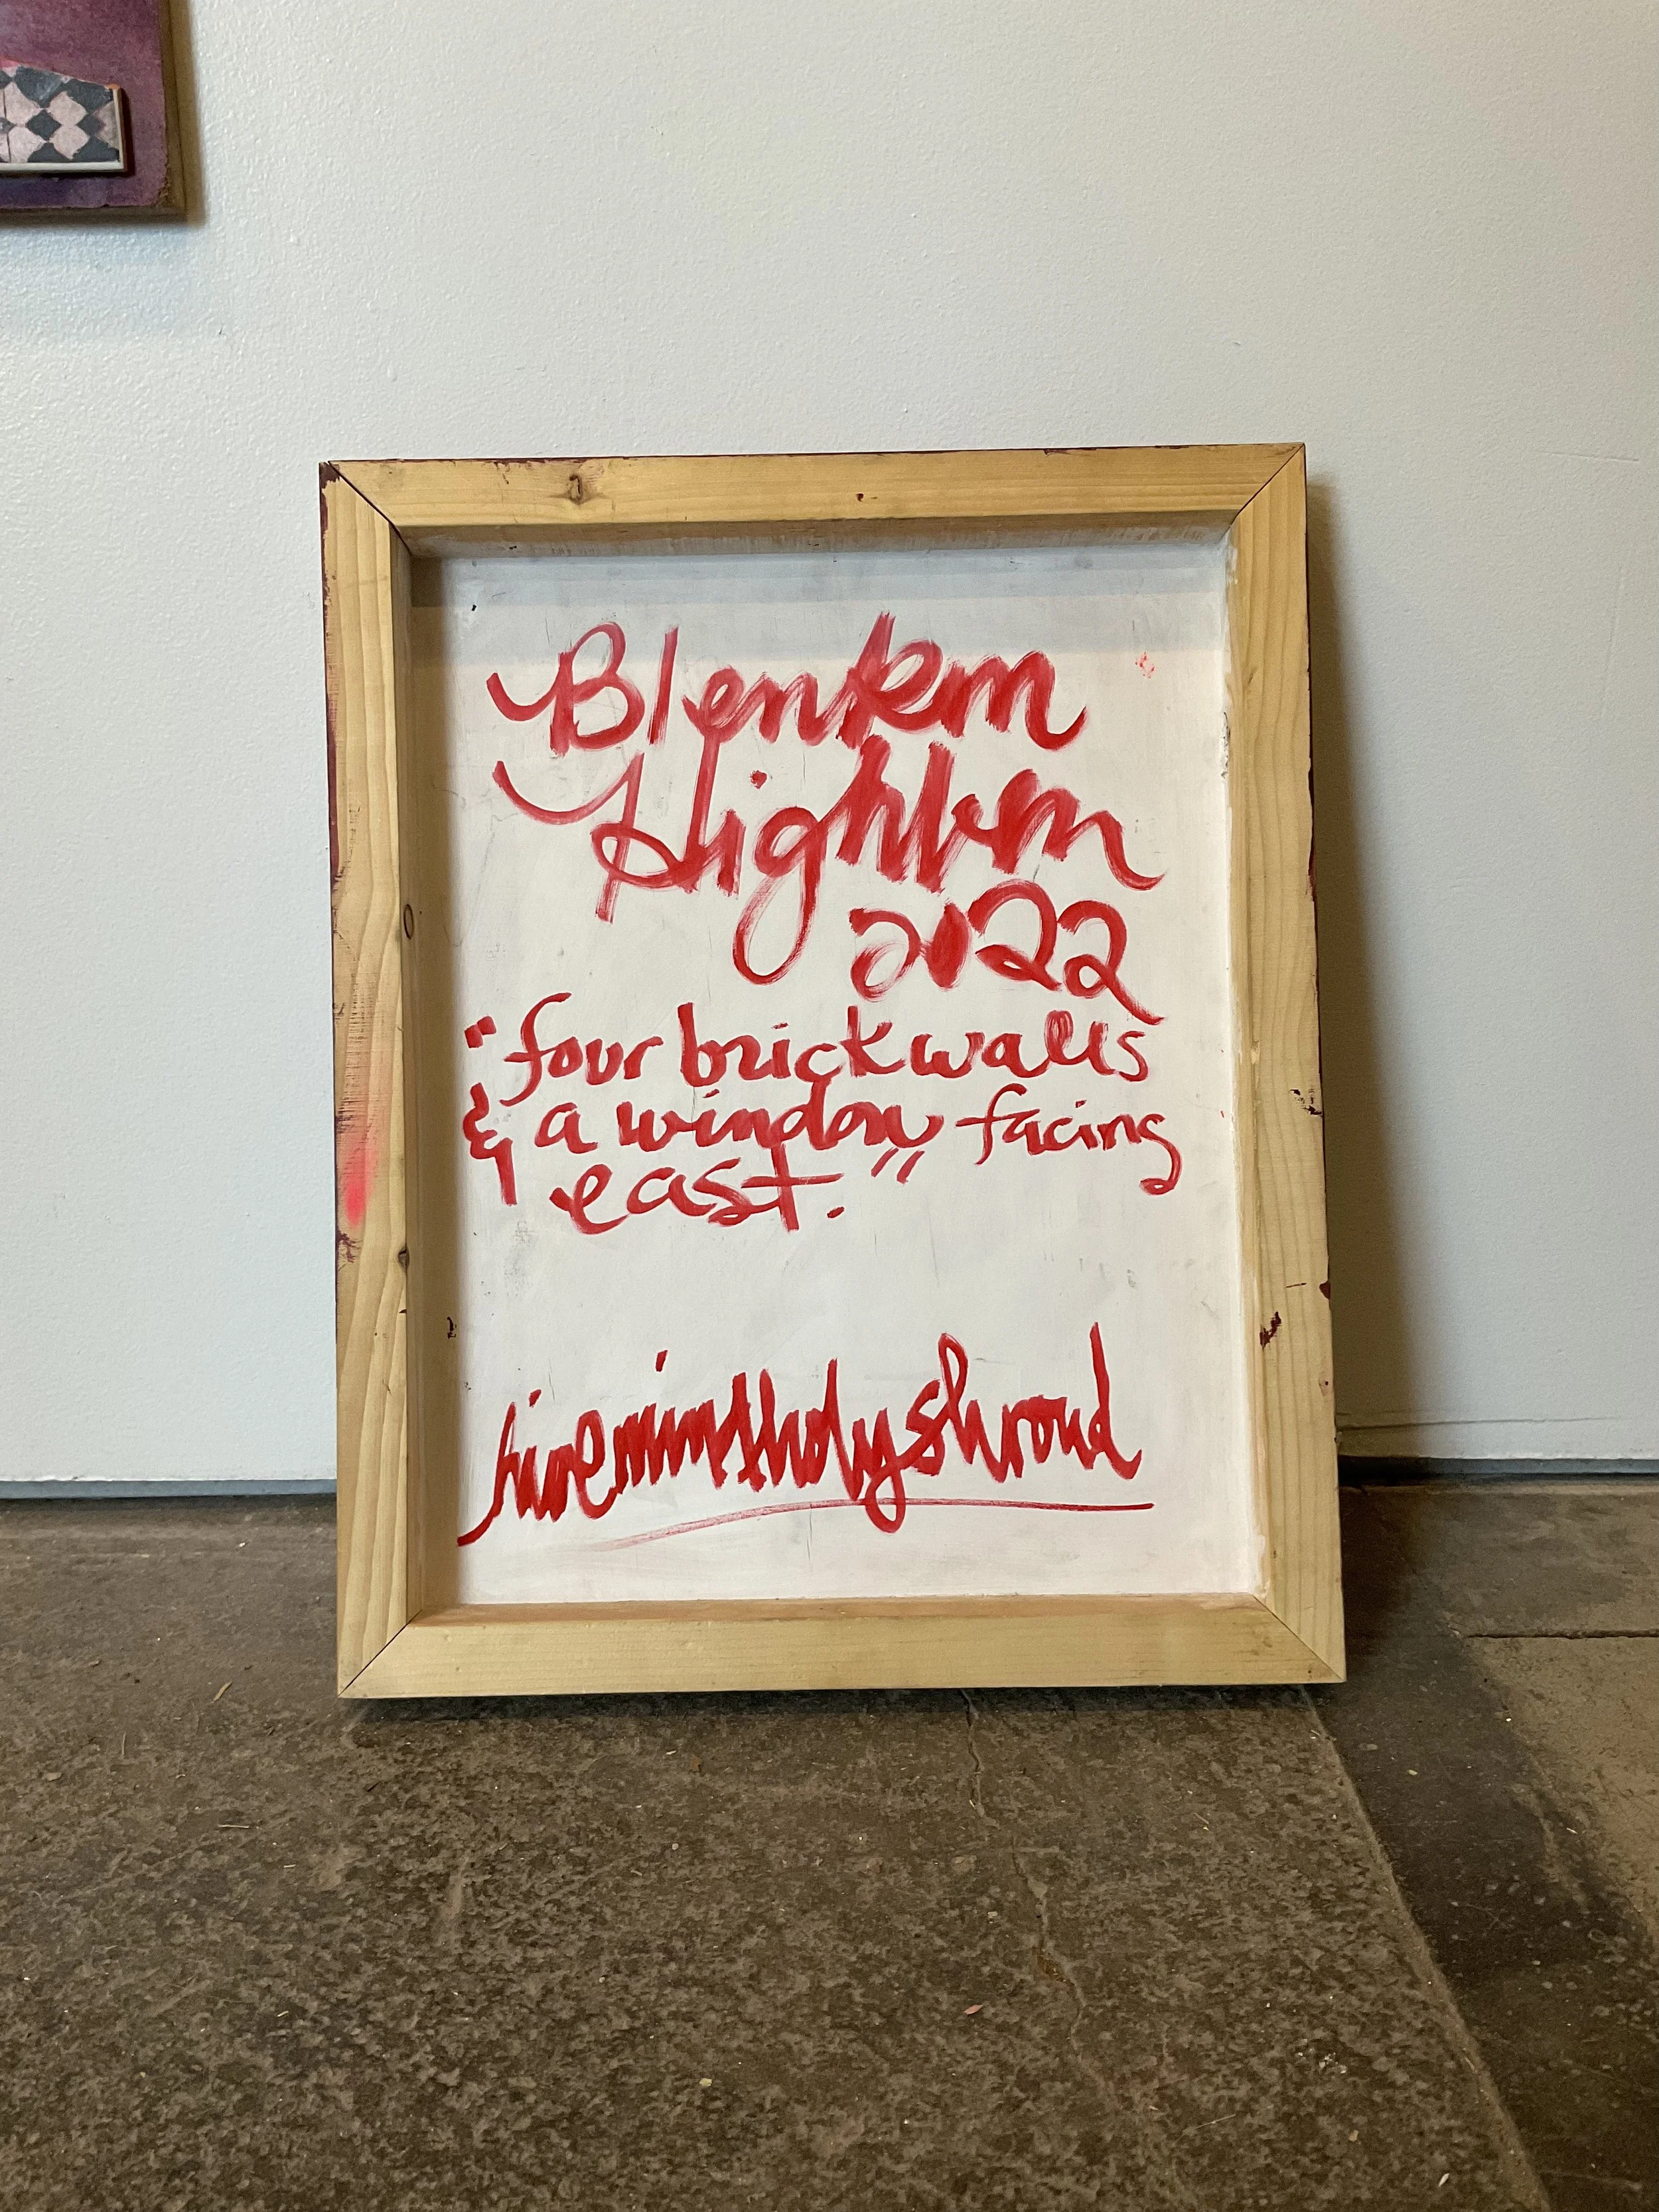 Blenkm
Highkm
2022
"four brick walls
& a window facing
east."